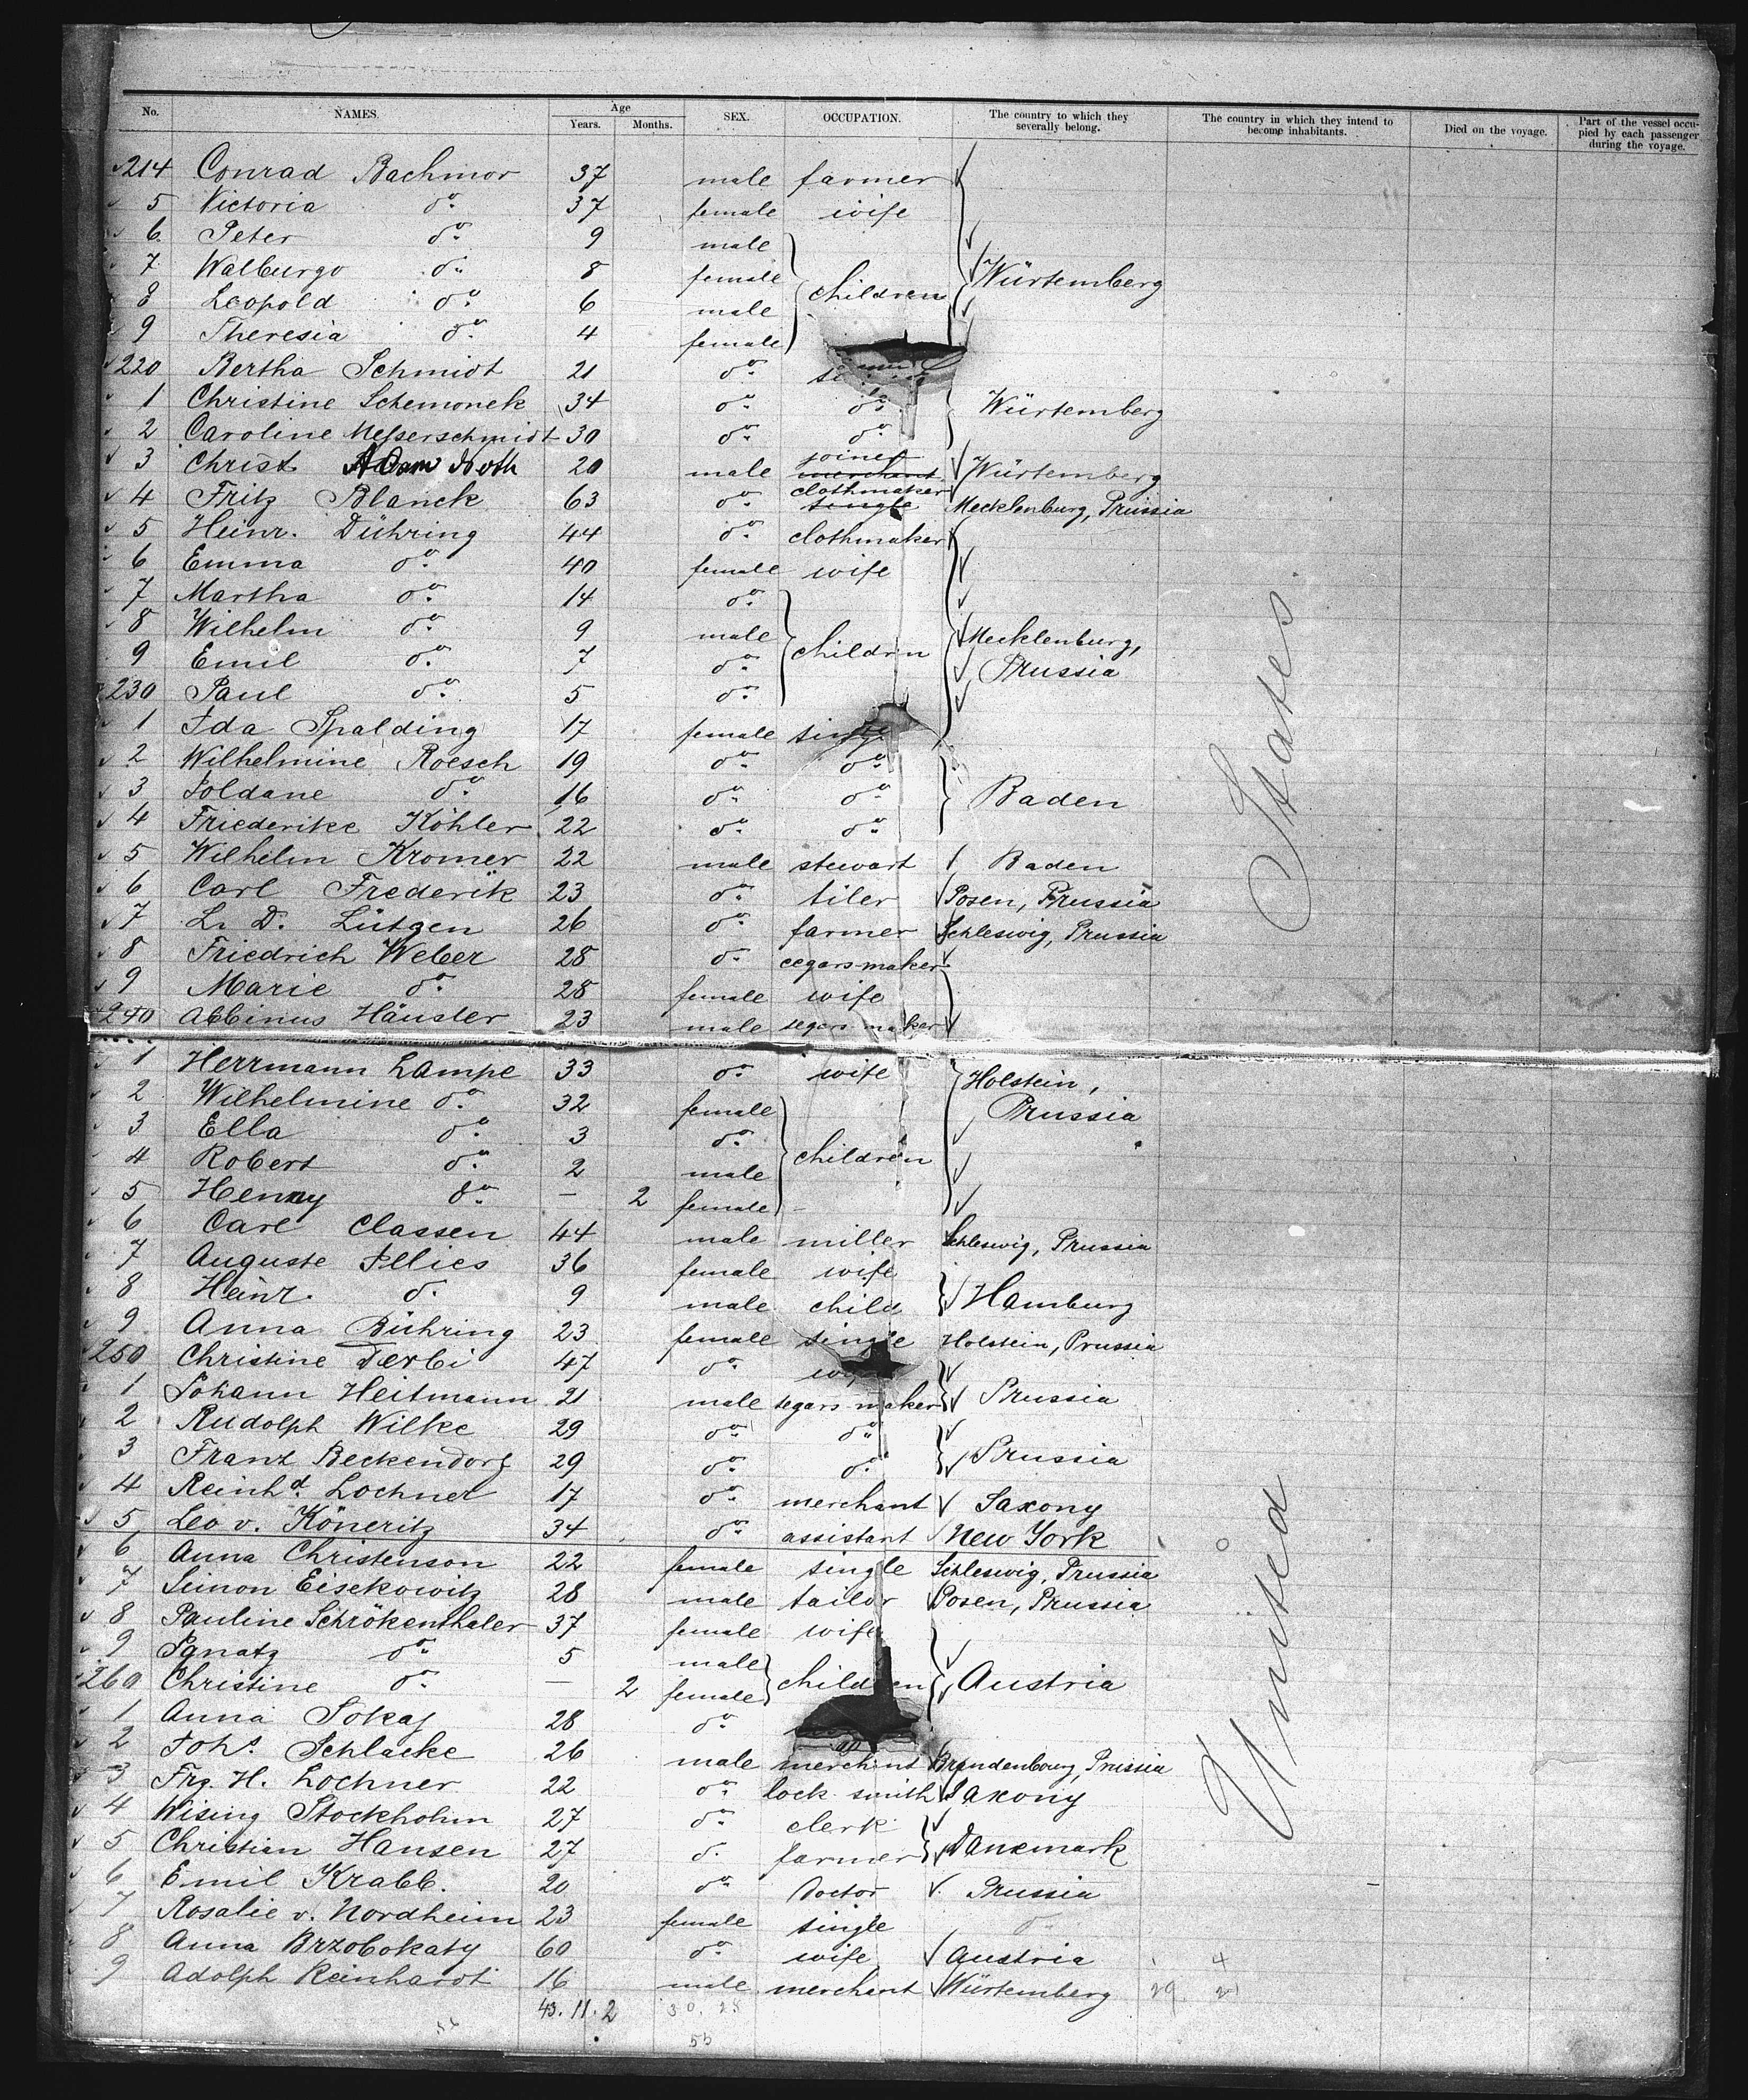 No. NAMES. Age Years. Months. SEX. OCCUPATION. The country to which they severally belong. The country in which they intend to become inhabitants. Died on the voyage. Part of the vessel occupied by each passenger during the voyage.
214 Conrad Bachmor 37 male farmer
5 Victoria do. 37 female wife
6 Peter do. 9 male
7 Walburgo do. 8 female children Würtemberg
8 Leopold do. 6 male
9 Theresia do. 4 female
220 Bertha Schmidt 21 do.
1 Christine Schemonek 34 do. do. Würtemberg
2 Caroline Messerschmidt 30 do. do.
3 Christ Adam 20 male joiner merchant Würtemberg
4 Fritz Blanck 63 do. clothmaker single Mecklenburg, Prussia
5 Heinr. Dühring 44 do. clothmaker
6 Emma do. 40 female wife
7 Martha do. 14 do.
8 Wilhelm do. 9 male children Mecklenburg,
9 Emil do. 7 do. Prussia
230 Paul do. 5 do.
1 Ida Spalding 17 female single
2 Wilhelmine Roesch 19 do. do.
3 Joldane do. 16 do. do. Baden
4 Friederike Köhler 22 do. do.
5 Wilhelm Kromer 22 male stewart Baden
6 Carl Frederik 23 do. tiler Posen, Prussia
7 L. D. Lützen 26 do. farmer Schleswig, Prussia
8 Friedrich Weber 28 do. cegars maker
9 Marie do. 28 female wife
240 Albinus Häusler 23 male segars maker
1 Herrmann Lampe 33 do. wife Holstein,
2 Wilhelmine do. 32 female Prussia
3 Ella do. 3 do. children
4 Robert do. 2 male
5 Henny do. — 2 female
6 Carl Classen 44 male miller Schleswig, Prussia
7 Auguste Illies 36 female wife
8 Heinr. do. 9 male child Hamburg
9 Anna Bühring 23 female single Holstein, Prussia
250 Christine Derbi 47 do.
1 Johann Heitmann 21 male segars maker Prussia
2 Rudolph Wilke 29 do. do.
3 Franz Beckendorf 29 do. do. Prussia
4 Reinhd. Lochner 17 do. merchant Saxony
5 Leo v. Köneritz 34 do. assistant New York
6 Anna Christenson 22 female single Schleswig, Prussia
7 Simon Eisekowitz 28 male tailor Posen, Prussia
8 Pauline Schrökenthaler 37 female wife
9 Ignatz do. 5 male children Austria
260 Christine do. — 2 female
1 Anna Sokaj 28 do.
2 Johs. Schlacke 26 male merchant Brandenbourg, Prussia
3 Frz. H. Lochner 22 do. lock smith Saxony
4 Wising Stockholm 27 do. clerk
5 Christian Hansen 27 do. farmer Danemark
6 Emil Krabb. 20 do. Doctor Prussia
7 Rosalie v. Nordheim 23 female single do.
8 Anna Brzobokaty 60 do. wife Austria 4
9 Adolph Reinhardt 16 male merchant Würtemberg 29
43. 11. 2 30. 25
55
United States